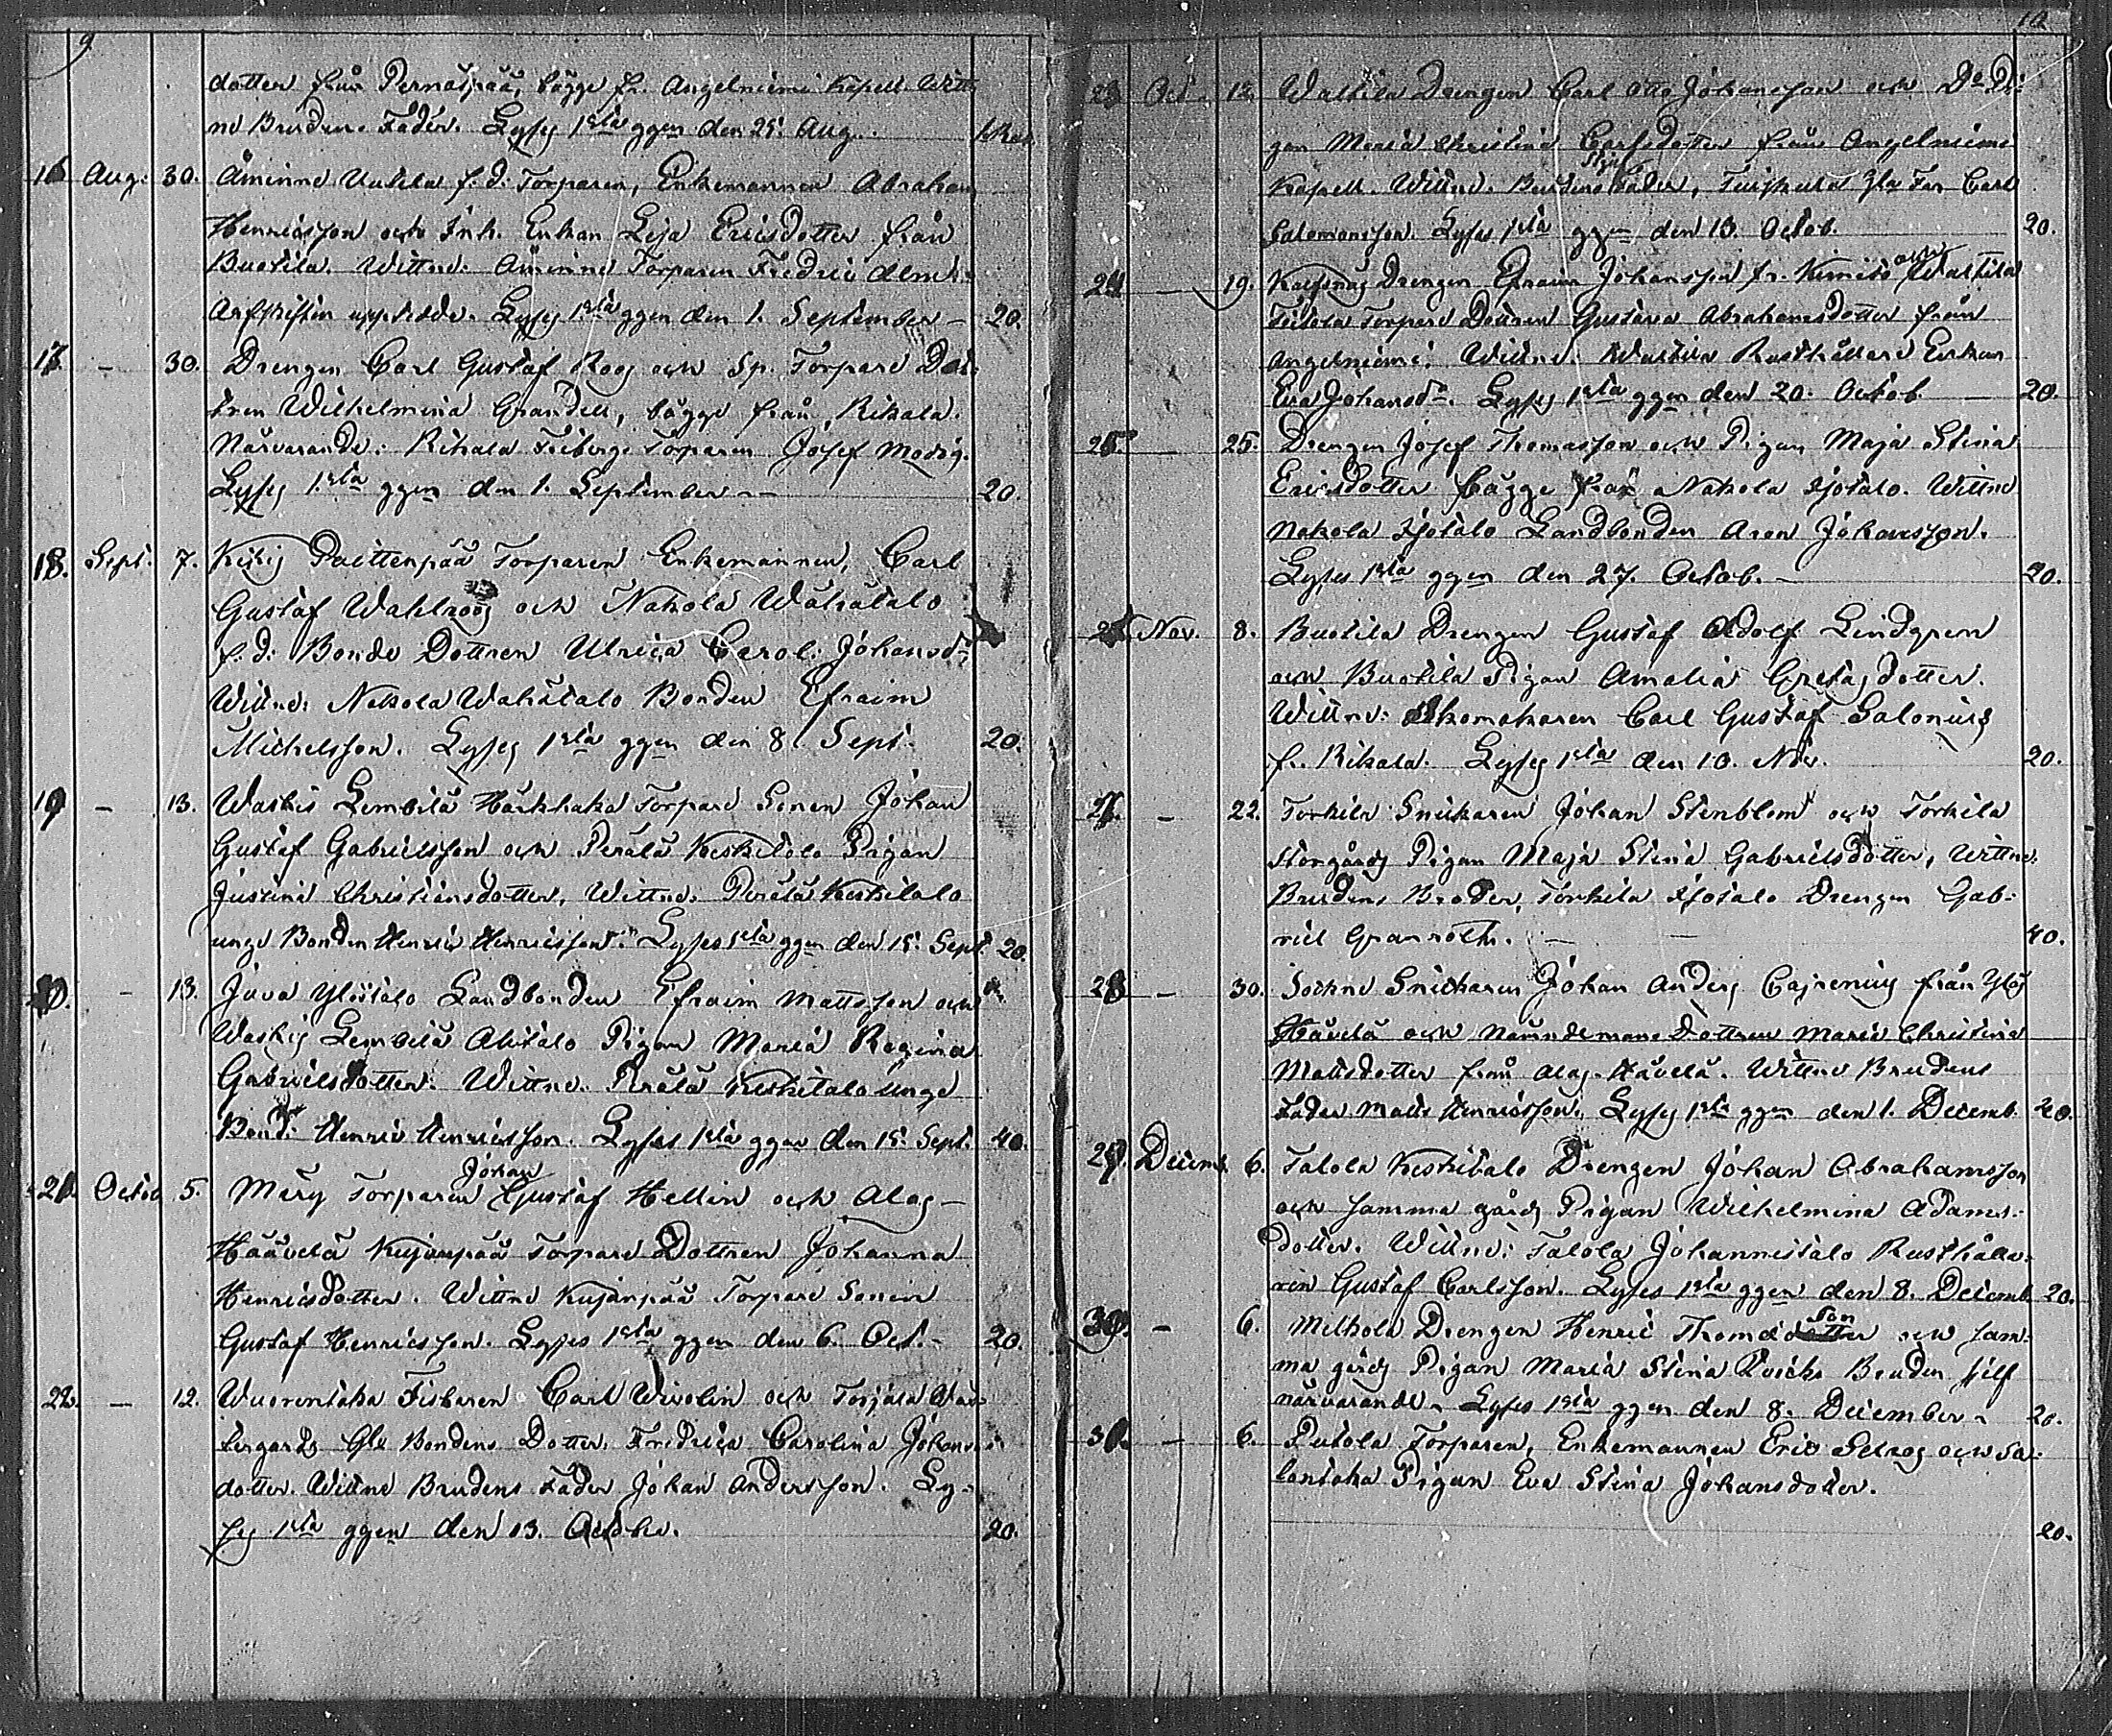 9
dotter från Pernäspää, bägge fr. Angelniemi Kapell. Witt-
ne Brudens Fader. Lyses 1sta ggen den 25. Aug.
16 Aug. 30. Åminne Uutela f.d. Torparen, Enkemannen Abraham
Henricsson och Inh. Enkan Lisa Ericsdotter från
Buotila. Wittne. Åminne Torparen Fredric
uppkidde. Lyses 1sta ggen den 1. September 20.
17. - 30. Drengen Carl Gustaf Roos och Sp. Torpare Dot-
tren Wilhelmina Grandell, bägge från Rikala.
Närvarande: Rikala Friberg Torparen Josef Modig.
Lyses 1sta ggen den 1. September 20.
18. Sept. 7. Kesis Paittenpää Torparen Enkemannen, Carl
Gustaf Wahlroos och Nakola Wähätalo
f.d. Bonde Dottren Ulrica Carol. Johansdr.
Wittne: Nakola Wähätalo Bonden Efraim
Michelsson. Lyses 1sta ggen den 8. Sept. 20.
19 - 13. Waskis Lembilä Härkhaka Torpare Sonen Johan
Gustaf Gabrielsson och Perälä Keskitalo Pigan
Justina Christiansdotter, Wittne. Perälä Keskitalo
unge Bonden Henric Henricsson. Lyses 1sta ggen den 15. Sept. 20.
20. - 13. Juva Ylistalo Landbonden Efraim Mattsson och
Waskis Lembilä Alitalo Pigan Maria Regina
Gabrielsdotter. Wittne. Perälä Keskitalo unge
Bond. Henric Henricsson. Lyses 1sta ggen den 15. Sept. 40.
Johan
21. Octob 5. Märy Torparen Gustaf Hellin och Alas-
Häävelä Kujanpää Torpare Dottren Johanna
Henricsdotter. Wittne Kujanpää Torpare Sonen
Gustaf Henricsson. Lyses 1sta ggen den 6. Oct. 20.
22. - 12. Wuorentaka Fiskaren Carl Wivolin och Torjala
Gle Bondens Dotter. Fredrica Carolina Johans-
dotter. Wittne Brudens Fader Johan Andersson. Ly-
ses 1sta ggen den 13. Octobr. 20.
10
23 Oct. 12. Waltila Drengen Carl Otto Johansson och Do Pi-
gan Maria Christina Carlsdotter från Angelniemi
Stjuf
Kapell. Wittne. Brudens Fader, Gle Far Carl
Salomonsson. Lyses 1sta ggen den 13. Octob. 20.
och
24 - 19. Drengen Efraim Johansson fr. Kimito Waltila
Torpare Dottren Gustava Abrahamsdotter från
Angelniemi. Wittne. Waltila Rusthållare Enkan
Eva Johansdr. Lyses 1sta ggen den 20. Octob. 20.
25. - 25. Drengen Josef Thomasson och Pigan Maja Stina
Ericsdotter bägge från Nakola Isotalo. Wittne
Nakola Isotalo Landbonden Aron Johansson.
Lyses 1sta ggen den 27. Octob. 20.
26 Nov. 8. Buotila Drengen Gustaf Adolf Lindgren
och Buotila Pigan Amalia Gretasdotter.
Wittne: Skomakaren Carl Gustaf Salonius
fr. Rikala. Lyses 1sta den 10. Nov. 20.
27. - 22. Torkila Snickaren Johan Stenblom och Torkila
Storgårds Pigan Maja Stina Gabrielsdotter, Wittne.
Brudens Broder, Torkila Isotalo Drengen Gab-
riel Granroth. 40.
28 - 30. Sockne Snickaren Johan Anders Cajrenius från Ylös
Häävelä och Nämndemans Dottren Maria Christina
Mattsdotter från Alas-Häävelä. Wittne Brudens
Fader Matts Henricsson. Lyses 1sta ggen den 1. Decemb. 20.
29. Decemb. 6. Talola Keskitalo Drengen Johan Abrahamsson
och samma gårds Pigan Wilhelmina Adams-
dotter. Wittne: Talola Johannistalo Rusthålla-
ren Gustaf Carlsson. Lyses 1sta ggen den 8. Decemb. 20.
son
30. - 6. Melkola Drengen Henric Thomasdotter och sam-
ma gårds Pigan Maria Stina Qvick. Bruden sielf
närvarande. Lyses 1sta ggen den 8. December. 20.
31. - 6. Putola Torparen, Enkemannen Eric Selroos och Sa-
lontaka Pigan Eva Stina Johansdotter.
20.